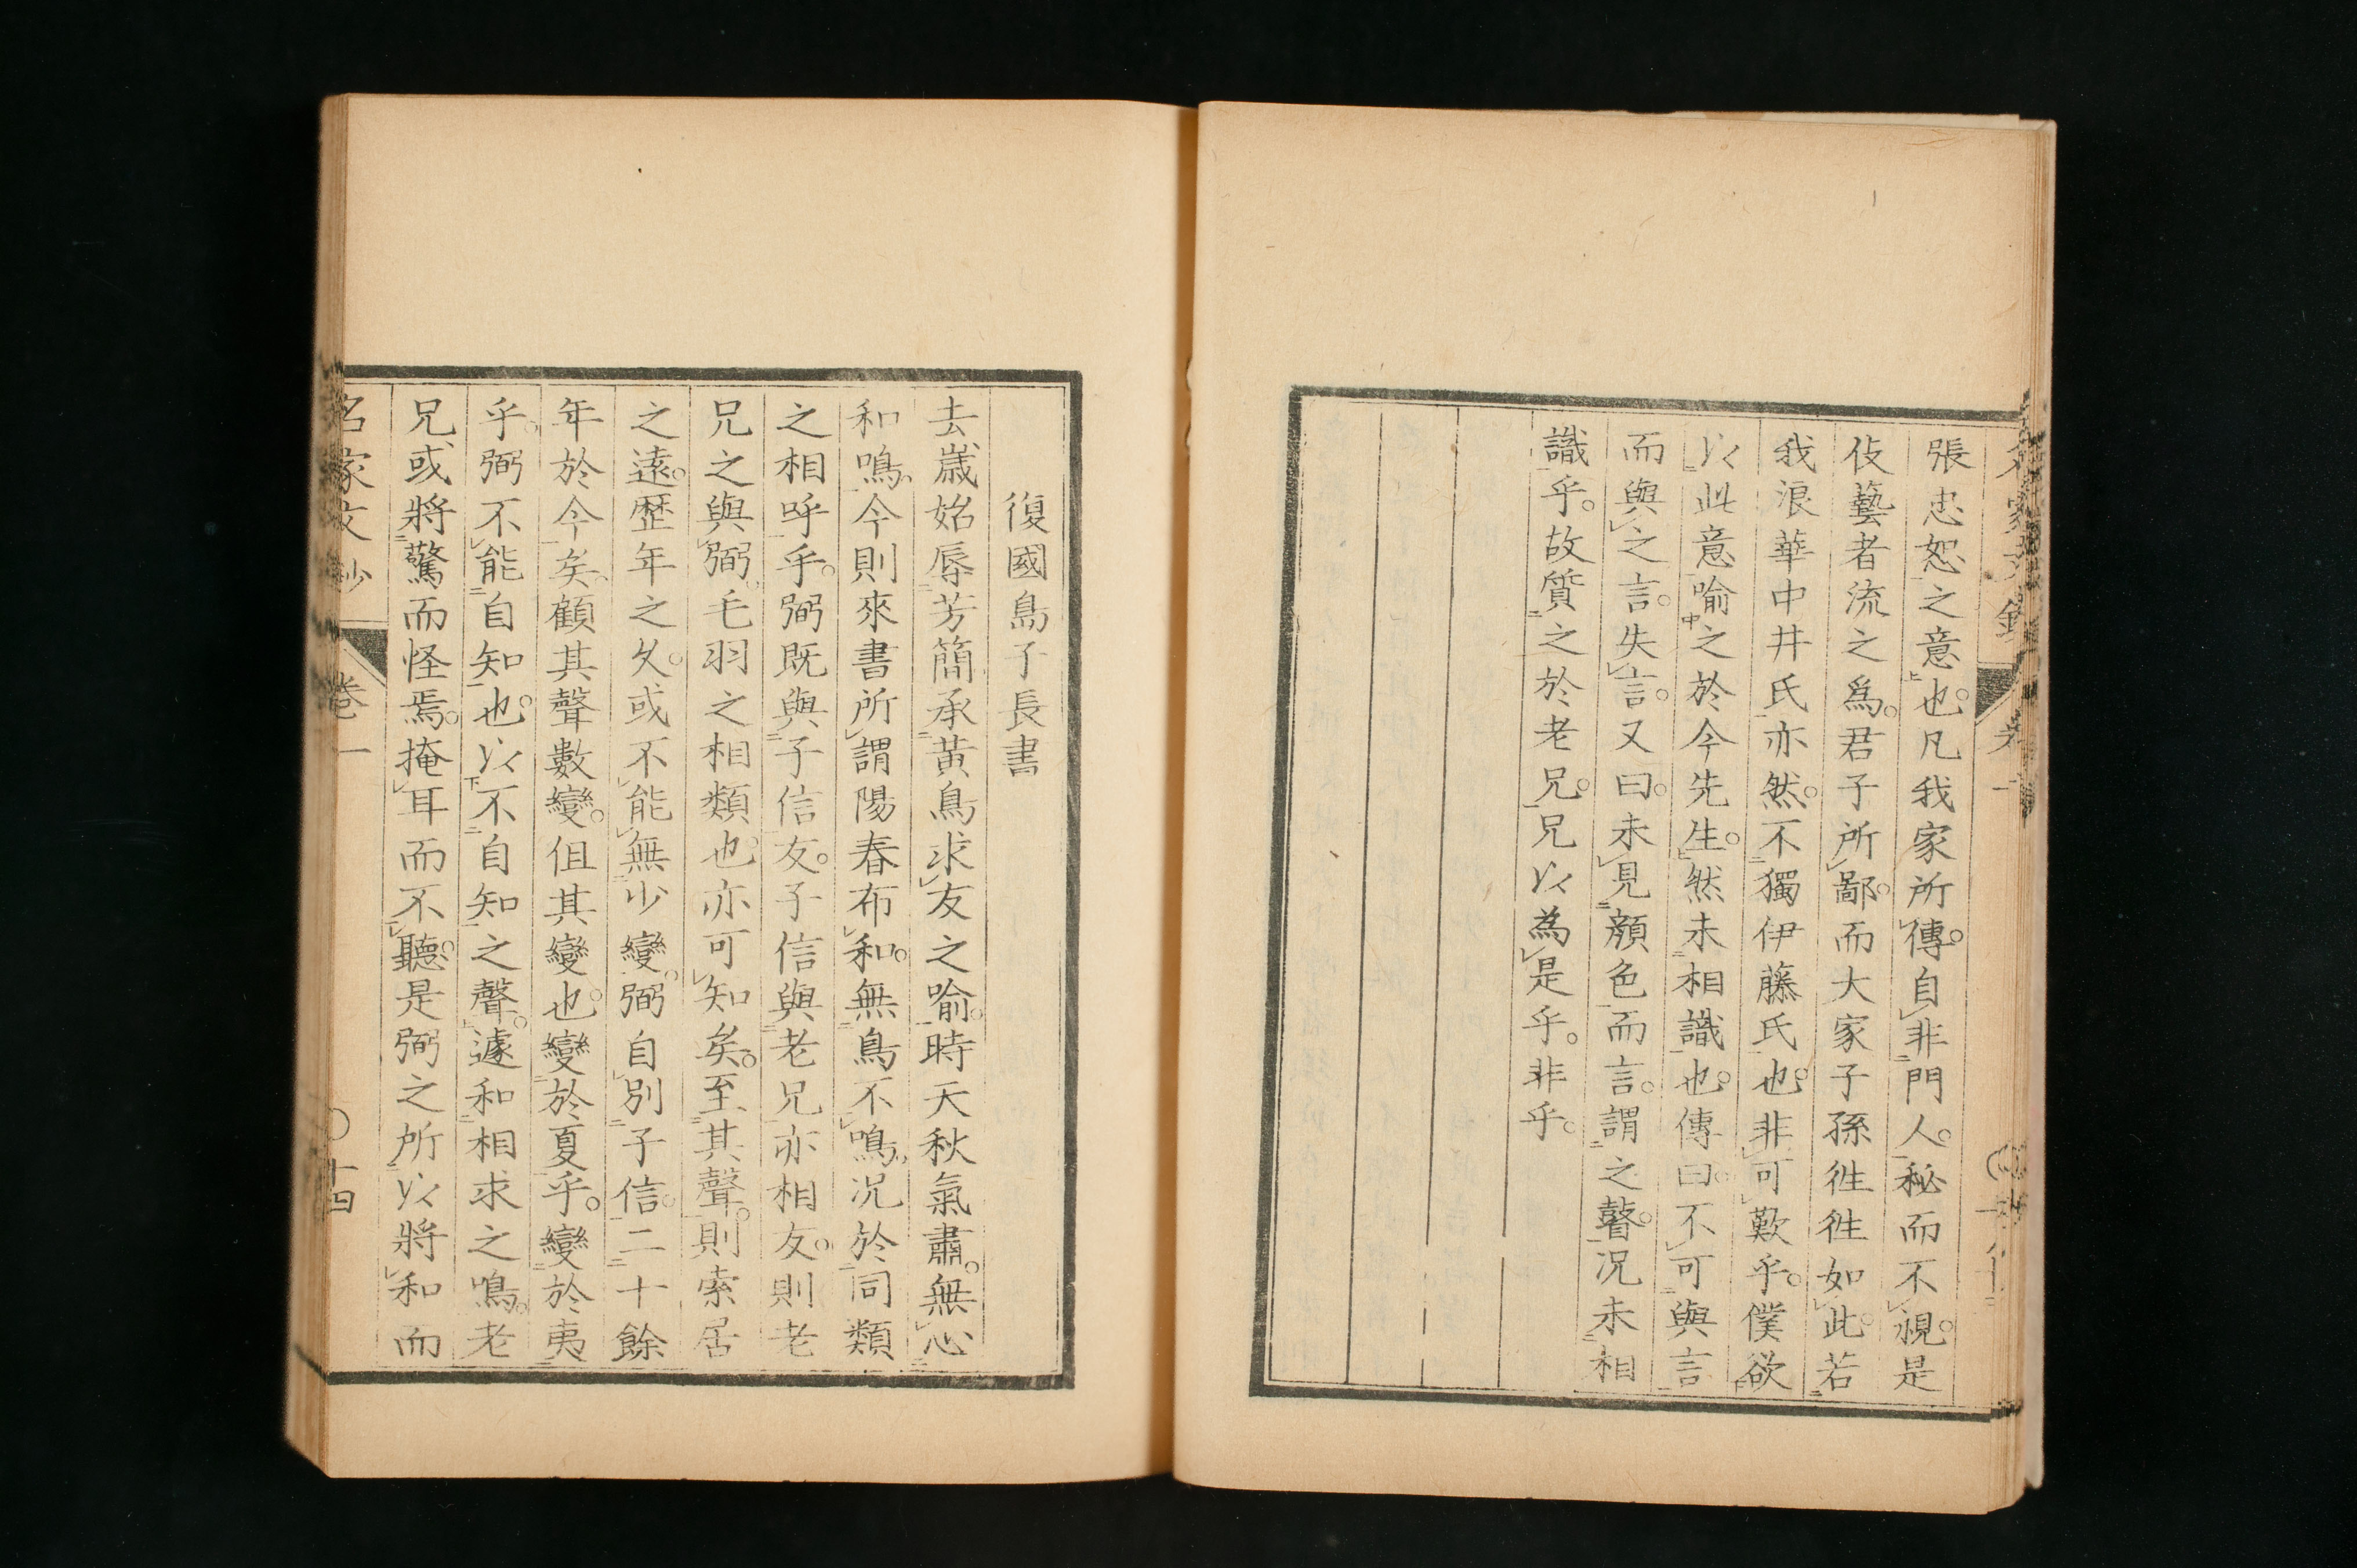 張忠恕之意也。凡我家所傳。自非門人。秘而不視。是
伎藝者流之爲。君子所鄙。而大家子孫徃徃如此。若
我浪華中井氏亦然。不獨伊藤氏也。非可歎乎。僕欲
以此意喻之於今先生。然未相識也。傳曰。不可與言
而與之言。失言。又曰。未見顏色而言。謂之瞽。況未相
識乎。故質之於老兄。兄以為是乎。非乎。
復國島子長書
去歲始辱芳簡承黃鳥求友之喻。時天秋氣肅。無心
和鳴。今則來書所謂陽春布和。無鳥不鳴。況於同類
之相呼乎。弼既與子信友。子信與老兄亦相友。則老
兄之與弼。毛羽之相類也。亦可知矣。至其聲。則索居
之遠。歷年之久。或不能無少變。弼自別子信。二十餘
年於今矣。顧其聲數變。但其變也。變於夏乎。變於夷
乎。弼不能自知也。以不自知之聲。遽和相求之鳴。老
兄或將驚而怪焉。掩耳而不聽。是弼之所以將和而
名家文抄
卷一
〇十四